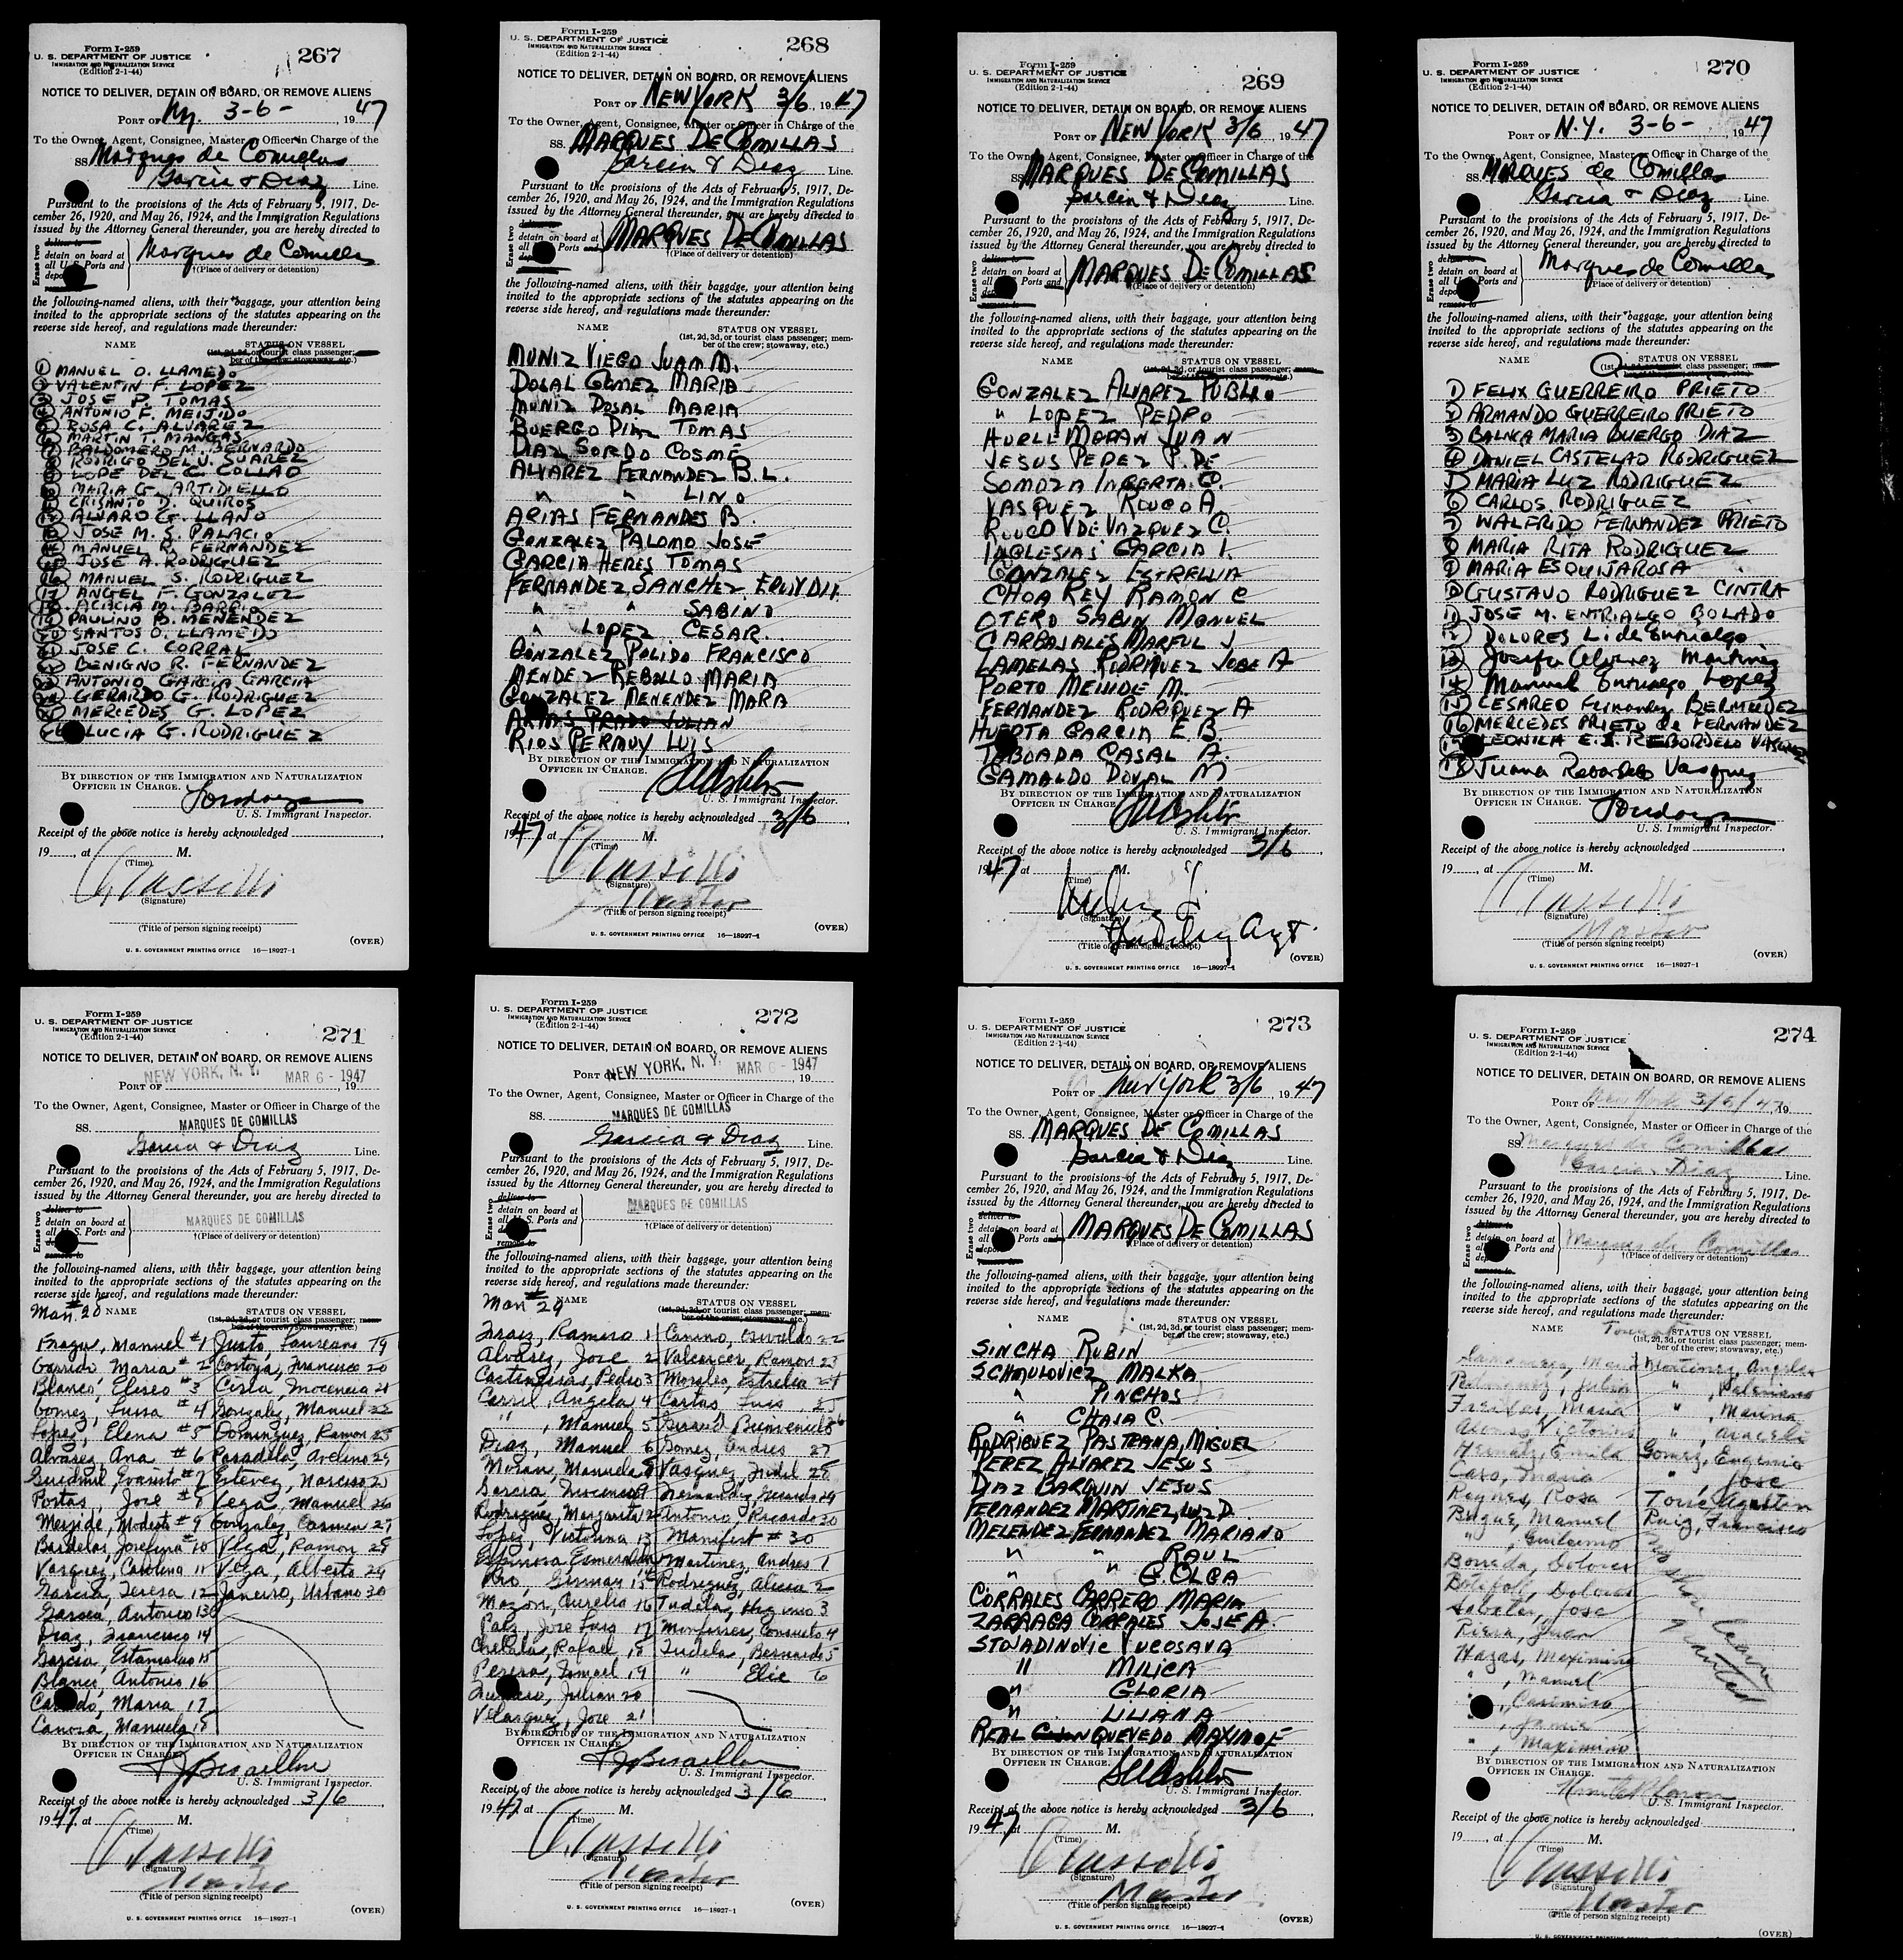 Form I-259
U. S. DEPARTMENT OF JUSTICE
IMMIGRATION AND NATURALIZATION SERVICE
(Edition 2-1-44)
267
NOTICE TO DELIVER, DETAIN ON BOARD, OR REMOVE ALIENS
PORT OF NY. 3-6-, 1947
To the Owner, Agent, Consignee, Master or Officer in Charge of the
SS. Marques de Comillas
Garcia & Diaz Line.
Pursuant to the provisions of the Acts of February 5, 1917, De-
cember 26, 1920, and May 26, 1924, and the Immigration Regulations
issued by the Attorney General thereunder, you are hereby directed to
Erase two
deliver to
detain on board at
all U.S. Ports and
Marques de Comillas
†(Place of delivery or detention)
the following-named aliens, with their baggage, your attention being
invited to the appropriate sections of the statutes appearing on the
reverse side hereof, and regulations made thereunder:
NAME STATUS ON VESSEL
(1st, 2d, 3d, or tourist class passenger;
ber of the crew; stowaway, etc.)
1 MANUEL O. LLAMEDO
2 VALENTIN F. LOPEZ
3 JOSE P. TOMAS
4 ANTONIO F. MEIJIDO
5 ROSA C. ALVAREZ
6 MARTIN T. MANGAS
7 BALDOMERO M. BERNARDO
8 RODRIGO DEL V. SUAREZ
9 LOPE DEL C. COLLAO
10 MARIA G. ARTIDIELLO
11 CRISANTO D. QUIROS
12 ALVARO G. LLANO
13 JOSE M. S. PALACIO
14 MANUEL R. FERNANDEZ
15 JOSE A. RODRIGUEZ
16 MANUEL S. RODRIGUEZ
17 ANGEL F. GONZALEZ
18 ACACIA M. BARRIO
19 PAULINO B. MENENDEZ
20 SANTOS O. LLAMEDO
21 JOSE C. CORRAL
22 BENIGNO R. FERNANDEZ
23 ANTONIO GARCIA GARCIA
24 GERARDO G. RODRIGUEZ
25 MERCEDES G. LOPEZ
26 LUCIA G. RODRIGUEZ
BY DIRECTION OF THE IMMIGRATION AND NATURALIZATION
OFFICER IN CHARGE.
U. S. Immigrant Inspector.
Receipt of the above notice is hereby acknowledged
19, at M.
(Time)
(Signature)
(Title of person signing receipt)
U. S. GOVERNMENT PRINTING OFFICE 16—18927-1
(OVER)
Form I-259
U. S. DEPARTMENT OF JUSTICE
IMMIGRATION AND NATURALIZATION SERVICE
(Edition 2-1-44)
268
NOTICE TO DELIVER, DETAIN ON BOARD, OR REMOVE ALIENS
PORT OF NEW YORK 3/6, 1947
To the Owner, Agent, Consignee, Master or Officer in Charge of the
SS. MARQUES DE COMILLAS
Garcia & Diaz Line.
Pursuant to the provisions of the Acts of February 5, 1917, De-
cember 26, 1920, and May 26, 1924, and the Immigration Regulations
issued by the Attorney General thereunder, you are hereby directed to
Erase two
detain on board at
all Ports and
MARQUES DE COMILLAS
†(Place of delivery or detention)
the following-named aliens, with their baggage, your attention being
invited to the appropriate sections of the statutes appearing on the
reverse side hereof, and regulations made thereunder:
NAME STATUS ON VESSEL
(1st, 2d, 3d, or tourist class passenger; mem-
ber of the crew; stowaway, etc.)
MUNIZ VIEGO JUAN M.
DOSAL GOMEZ MARIA
MUNIZ DOSAL MARIA
BUERGO DIAZ TOMAS
DIAZ SORDO COSME
ALVAREZ FERNANDEZ B. L.
" " LINO
ARIAS FERNANDES B.
GONZALEZ PALOMO JOSE
GARCIA HERES TOMAS
FERNANDEZ SANCHEZ
" " SABINO
" LOPEZ CESAR
GONZALEZ POLIDO FRANCISCO
MENDEZ REBOLLO MARIA
GONZALEZ MENENDEZ MARA
ARIAS PRADO JULIAN
RIOS PERMUY LUIS
BY DIRECTION OF THE IMMIGRATION AND NATURALIZATION
OFFICER IN CHARGE.
U. S. Immigrant Inspector.
Receipt of the above notice is hereby acknowledged 3/6
1947 at M.
(Time)
(Signature)
Master
(Title of person signing receipt)
U. S. GOVERNMENT PRINTING OFFICE 16—18927-1
(OVER)
Form I-259
U. S. DEPARTMENT OF JUSTICE
IMMIGRATION AND NATURALIZATION SERVICE
(Edition 2-1-44)
269
NOTICE TO DELIVER, DETAIN ON BOARD, OR REMOVE ALIENS
PORT OF NEW YORK 3/6, 1947
To the Owner, Agent, Consignee, Master or Officer in Charge of the
SS. MARQUES DE COMILLAS
Garcia & Diaz Line.
Pursuant to the provisions of the Acts of February 5, 1917, De-
cember 26, 1920, and May 26, 1924, and the Immigration Regulations
issued by the Attorney General thereunder, you are hereby directed to
Erase two
detain on board at
all Ports and
MARQUES DE COMILLAS
†(Place of delivery or detention)
the following-named aliens, with their baggage, your attention being
invited to the appropriate sections of the statutes appearing on the
reverse side hereof, and regulations made thereunder:
NAME STATUS ON VESSEL
(1st, 2d, 3d, or tourist class passenger; mem-
ber of the crew; stowaway, etc.)
GONZALEZ ALVAREZ PUBLIO
" LOPEZ PEDRO
HUELE MORAN JUAN
JESUS PEREZ P. DE
SOMOZA INCERTA C.
VASQUEZ ROUCO A
ROUCO V DE VAZQUEZ C.
INGLESIAS GARCIA I.
GONZALEZ ESTRELLIA
CHOA REY RAMON C
OTERO SABIN MANUEL
CARBAJALES MARFUL J
LAMELAS RODRIQUEZ JOSE A
PORTO MEIJIDE M.
FERNANDEZ RODRIQUEZ A
HUERTA GARCIA E. B.
TABOADA CASAL A.
GAMALDO DOVAL M
BY DIRECTION OF THE IMMIGRATION AND NATURALIZATION
OFFICER IN CHARGE
U. S. Immigrant Inspector.
Receipt of the above notice is hereby acknowledged 3/6
1947 at M.
(Time)
(Signature)
Agt.
(Title of person signing receipt)
U. S. GOVERNMENT PRINTING OFFICE 16—18927-1
(OVER)
Form I-259
U. S. DEPARTMENT OF JUSTICE
IMMIGRATION AND NATURALIZATION SERVICE
(Edition 2-1-44)
270
NOTICE TO DELIVER, DETAIN ON BOARD, OR REMOVE ALIENS
PORT OF N.Y. 3-6-, 1947
To the Owner, Agent, Consignee, Master or Officer in Charge of the
SS. MARQUES de Comillas
Garcia & Diaz Line.
Pursuant to the provisions of the Acts of February 5, 1917, De-
cember 26, 1920, and May 26, 1924, and the Immigration Regulations
issued by the Attorney General thereunder, you are hereby directed to
Erase two
deliver to
detain on board at
all Ports and
remove to
Marques de Comillas
†(Place of delivery or detention)
the following-named aliens, with their baggage, your attention being
invited to the appropriate sections of the statutes appearing on the
reverse side hereof, and regulations made thereunder:
NAME STATUS ON VESSEL
1) FELIX GUERREIRO PRIETO
2) ARMANDO GUERREIRO PRIETO
3) BALNCA MARIA BUERGO DIAZ
4) DANIEL CASTELAO RODRIGUEZ
5) MARIA LUZ RODRIGUEZ
6) CARLOS RODRIGUEZ
7) WALFRIDO FERNANDEZ PRIETO
8) MARIA RITA RODRIGUEZ
9) MARIA ESQUIJAROSA
10) GUSTAVO RODRIGUEZ CINTRA
11) JOSE M. ENTRIALGO BOLADO
12) DOLORES L. de Entrialgo
13) Josefa Alvarez Martinez
14) Manuel Entrialgo Lopez
15) CESAREO Fernandez BERMUDEZ
16) MERCEDES PRIETO de FERNANDEZ
17) LEONILA E. S. REBORDELO VASQUEZ
18) Juana Rebordelo Vasquez
BY DIRECTION OF THE IMMIGRATION AND NATURALIZATION
OFFICER IN CHARGE.
U. S. Immigrant Inspector.
Receipt of the above notice is hereby acknowledged
19, at M.
(Time)
(Signature)
Master
(Title of person signing receipt)
U. S. GOVERNMENT PRINTING OFFICE 16—18927-1
(OVER)
Form I-259
U. S. DEPARTMENT OF JUSTICE
IMMIGRATION AND NATURALIZATION SERVICE
(Edition 2-1-44)
271
NOTICE TO DELIVER, DETAIN ON BOARD, OR REMOVE ALIENS
PORT OF NEW YORK, N. Y. MAR 6 - 1947, 19
To the Owner, Agent, Consignee, Master or Officer in Charge of the
SS. MARQUES DE COMILLAS
Garcia & Diaz Line.
Pursuant to the provisions of the Acts of February 5, 1917, De-
cember 26, 1920, and May 26, 1924, and the Immigration Regulations
issued by the Attorney General thereunder, you are hereby directed to
Erase two
deliver to
detain on board at
all U. S. Ports and
remove to
MARQUES DE COMILLAS
†(Place of delivery or detention)
the following-named aliens, with their baggage, your attention being
invited to the appropriate sections of the statutes appearing on the
reverse side hereof, and regulations made thereunder:
Man. #20 NAME STATUS ON VESSEL
(1st, 2d, 3d, or tourist class passenger; mem-
ber of the crew; stowaway, etc.)
Manuel #1 Justo, Laureano 19
Garrido, Maria #2 Costoya, Francisco 20
Blanco, Eliseo #3 Inocencia 21
Gomez, Luisa #4 Gonzalez, Manuel 22
Lopez, Elena #5 Dominguez, Ramon 23
Alvarez, Ana #6 Posadela, Avelino 24
Evaristo #7 Estevez, Narciso 25
Portas, Jose #8 Vega, Manuel 26
Meijide, Modesto #9 Gonzalez, Carmen 27
Bardelas, Josefina #10 Vega, Ramon 28
Vasquez, Carolina 11 Vega, Alberto 29
Garcia, Teresa 12 Janeiro, Urbano 30
Garcia, Antonio 13
Diaz, Francisco 14
Garcia, Estanislao 15
Blanco, Antonio 16
Maria 17
Canosa, Manuela 18
BY DIRECTION OF THE IMMIGRATION AND NATURALIZATION
OFFICER IN CHARGE
U. S. Immigrant Inspector.
Receipt of the above notice is hereby acknowledged 3/6
1947, at M.
(Time)
(Signature)
Master
(Title of person signing receipt)
U. S. GOVERNMENT PRINTING OFFICE 16—18927-1
(OVER)
Form I-259
U. S. DEPARTMENT OF JUSTICE
IMMIGRATION AND NATURALIZATION SERVICE
(Edition 2-1-44)
272
NOTICE TO DELIVER, DETAIN ON BOARD, OR REMOVE ALIENS
PORT OF NEW YORK, N. Y. MAR 6 - 1947, 19
To the Owner, Agent, Consignee, Master or Officer in Charge of the
SS. MARQUES DE COMILLAS
Garcia & Diaz Line.
Pursuant to the provisions of the Acts of February 5, 1917, De-
cember 26, 1920, and May 26, 1924, and the Immigration Regulations
issued by the Attorney General thereunder, you are hereby directed to
Erase two
deliver to
detain on board at
all U. S. Ports and
remove to
MARQUES DE COMILLAS
†(Place of delivery or detention)
the following-named aliens, with their baggage, your attention being
invited to the appropriate sections of the statutes appearing on the
reverse side hereof, and regulations made thereunder:
Man #29 NAME STATUS ON VESSEL
(1st, 2d, 3d, or tourist class passenger; mem-
ber of the crew; stowaway, etc.)
Ramiro 1 Canino, Osvaldo 22
Alvarez, Jose 2 Valcarcer, Ramon 23
Pedro 3 Morales, Estrella 24
Carril, Angela 4 Luis 25
", Manuel 5 Buinvenido 26
Diaz, Manuel 6 Gomez, Andres 27
Moran, Manuela 8 Vasquez, 28
Garcia, Inocencio 9 Fernandez, Gerardo 29
Rodriguez, Margarita 12 Antonio, Ricardo 30
Lopez, Victorina 13 Manifest #30
Espinosa Esmeralda Martinez, Andres 1
German 15 Rodriguez, Alicia 2
Mazon, Aurelio 16 Tudela, Higinio 3
Paez, Jose Luis 17 Consuelo 4
Rafael, 18 Tudela, Bernardo 5
Perera, Ismael 19 " Elie 6
Julian 20
Velasquez, Jose 21
BY DIRECTION OF THE IMMIGRATION AND NATURALIZATION
OFFICER IN CHARGE.
U. S. Immigrant Inspector.
Receipt of the above notice is hereby acknowledged 3/6
1947, at M.
(Time)
(Signature)
Master
(Title of person signing receipt)
U. S. GOVERNMENT PRINTING OFFICE 16—18927-1
(OVER)
Form I-259
U. S. DEPARTMENT OF JUSTICE
IMMIGRATION AND NATURALIZATION SERVICE
(Edition 2-1-44)
273
NOTICE TO DELIVER, DETAIN ON BOARD, OR REMOVE ALIENS
PORT OF New York 3/6, 1947
To the Owner, Agent, Consignee, Master or Officer in Charge of the
SS. MARQUES DE COMILLAS
Garcia & Diaz Line.
Pursuant to the provisions of the Acts of February 5, 1917, De-
cember 26, 1920, and May 26, 1924, and the Immigration Regulations
issued by the Attorney General thereunder, you are hereby directed to
Erase two
detain on board at
all Ports and
MARQUES DE COMILLAS
†(Place of delivery or detention)
the following-named aliens, with their baggage, your attention being
invited to the appropriate sections of the statutes appearing on the
reverse side hereof, and regulations made thereunder:
NAME STATUS ON VESSEL
(1st, 2d, 3d, or tourist class passenger; mem-
ber of the crew; stowaway, etc.)
SINCHA RUBIN
SCHMULOVICZ MALKA
" PINCHOS
" CHAIA C.
RODRIGUEZ PASTRANA, MIGUEL
PEREZ ALVAREZ JESUS
DIAZ BARQUIN JESUS
FERNANDEZ MARTINEZ, LUZ D.
MELENDEZ FERNANDEZ MARIANO
" " RAUL
" " G. OLGA
CORRALES CARRERO MARIA
ZARRAGA CORRALES JOSE A.
STOJADINOVIC VUCOSAVA
" MILICA
" GLORIA
" LILIANA
REAL QUEVEDO MAXIMO F
BY DIRECTION OF THE IMMIGRATION AND NATURALIZATION
OFFICER IN CHARGE.
U. S. Immigrant Inspector.
Receipt of the above notice is hereby acknowledged 3/6
1947, at M.
(Time)
(Signature)
Master
(Title of person signing receipt)
U. S. GOVERNMENT PRINTING OFFICE 16—18927-1
(OVER)
Form I-259
U. S. DEPARTMENT OF JUSTICE
IMMIGRATION AND NATURALIZATION SERVICE
(Edition 2-1-44)
274
NOTICE TO DELIVER, DETAIN ON BOARD, OR REMOVE ALIENS
PORT OF New York 3/6/47, 19
To the Owner, Agent, Consignee, Master or Officer in Charge of the
SS. Marques de Comillas
Garcia & Diaz Line.
Pursuant to the provisions of the Acts of February 5, 1917, De-
cember 26, 1920, and May 26, 1924, and the Immigration Regulations
issued by the Attorney General thereunder, you are hereby directed to
Erase two
deliver to
detain on board at
all Ports and
Marques de Comillas
†(Place of delivery or detention)
the following-named aliens, with their baggage, your attention being
invited to the appropriate sections of the statutes appearing on the
reverse side hereof, and regulations made thereunder:
NAME STATUS ON VESSEL
(1st, 2d, 3d, or tourist class passenger; mem-
ber of the crew; stowaway, etc.)
Maria Martinez, Angeles
Rodriguez, Julia ", Valeriano
Freitas, Maria ", Marina
Alonso, Victorino ", Araceli
Emila Gomez, Eugenio
Caro, Maria ", Jose
Reynes, Rosa Torre, Agusten
Buque, Manuel Ruiz, Francisco
", Guillermo
Boneda, Dolores
Botifoll, Dolores
Sabater, Jose
Riera, Juan
Hazas, Maximina
", Manuel
", Casimiro
", Jamie
", Maximino
No shore leave granted
BY DIRECTION OF THE IMMIGRATION AND NATURALIZATION
OFFICER IN CHARGE.
U. S. Immigrant Inspector.
Receipt of the above notice is hereby acknowledged
19, at M.
(Time)
(Signature)
Master
(Title of person signing receipt)
U. S. GOVERNMENT PRINTING OFFICE 16—18927-1
(OVER)